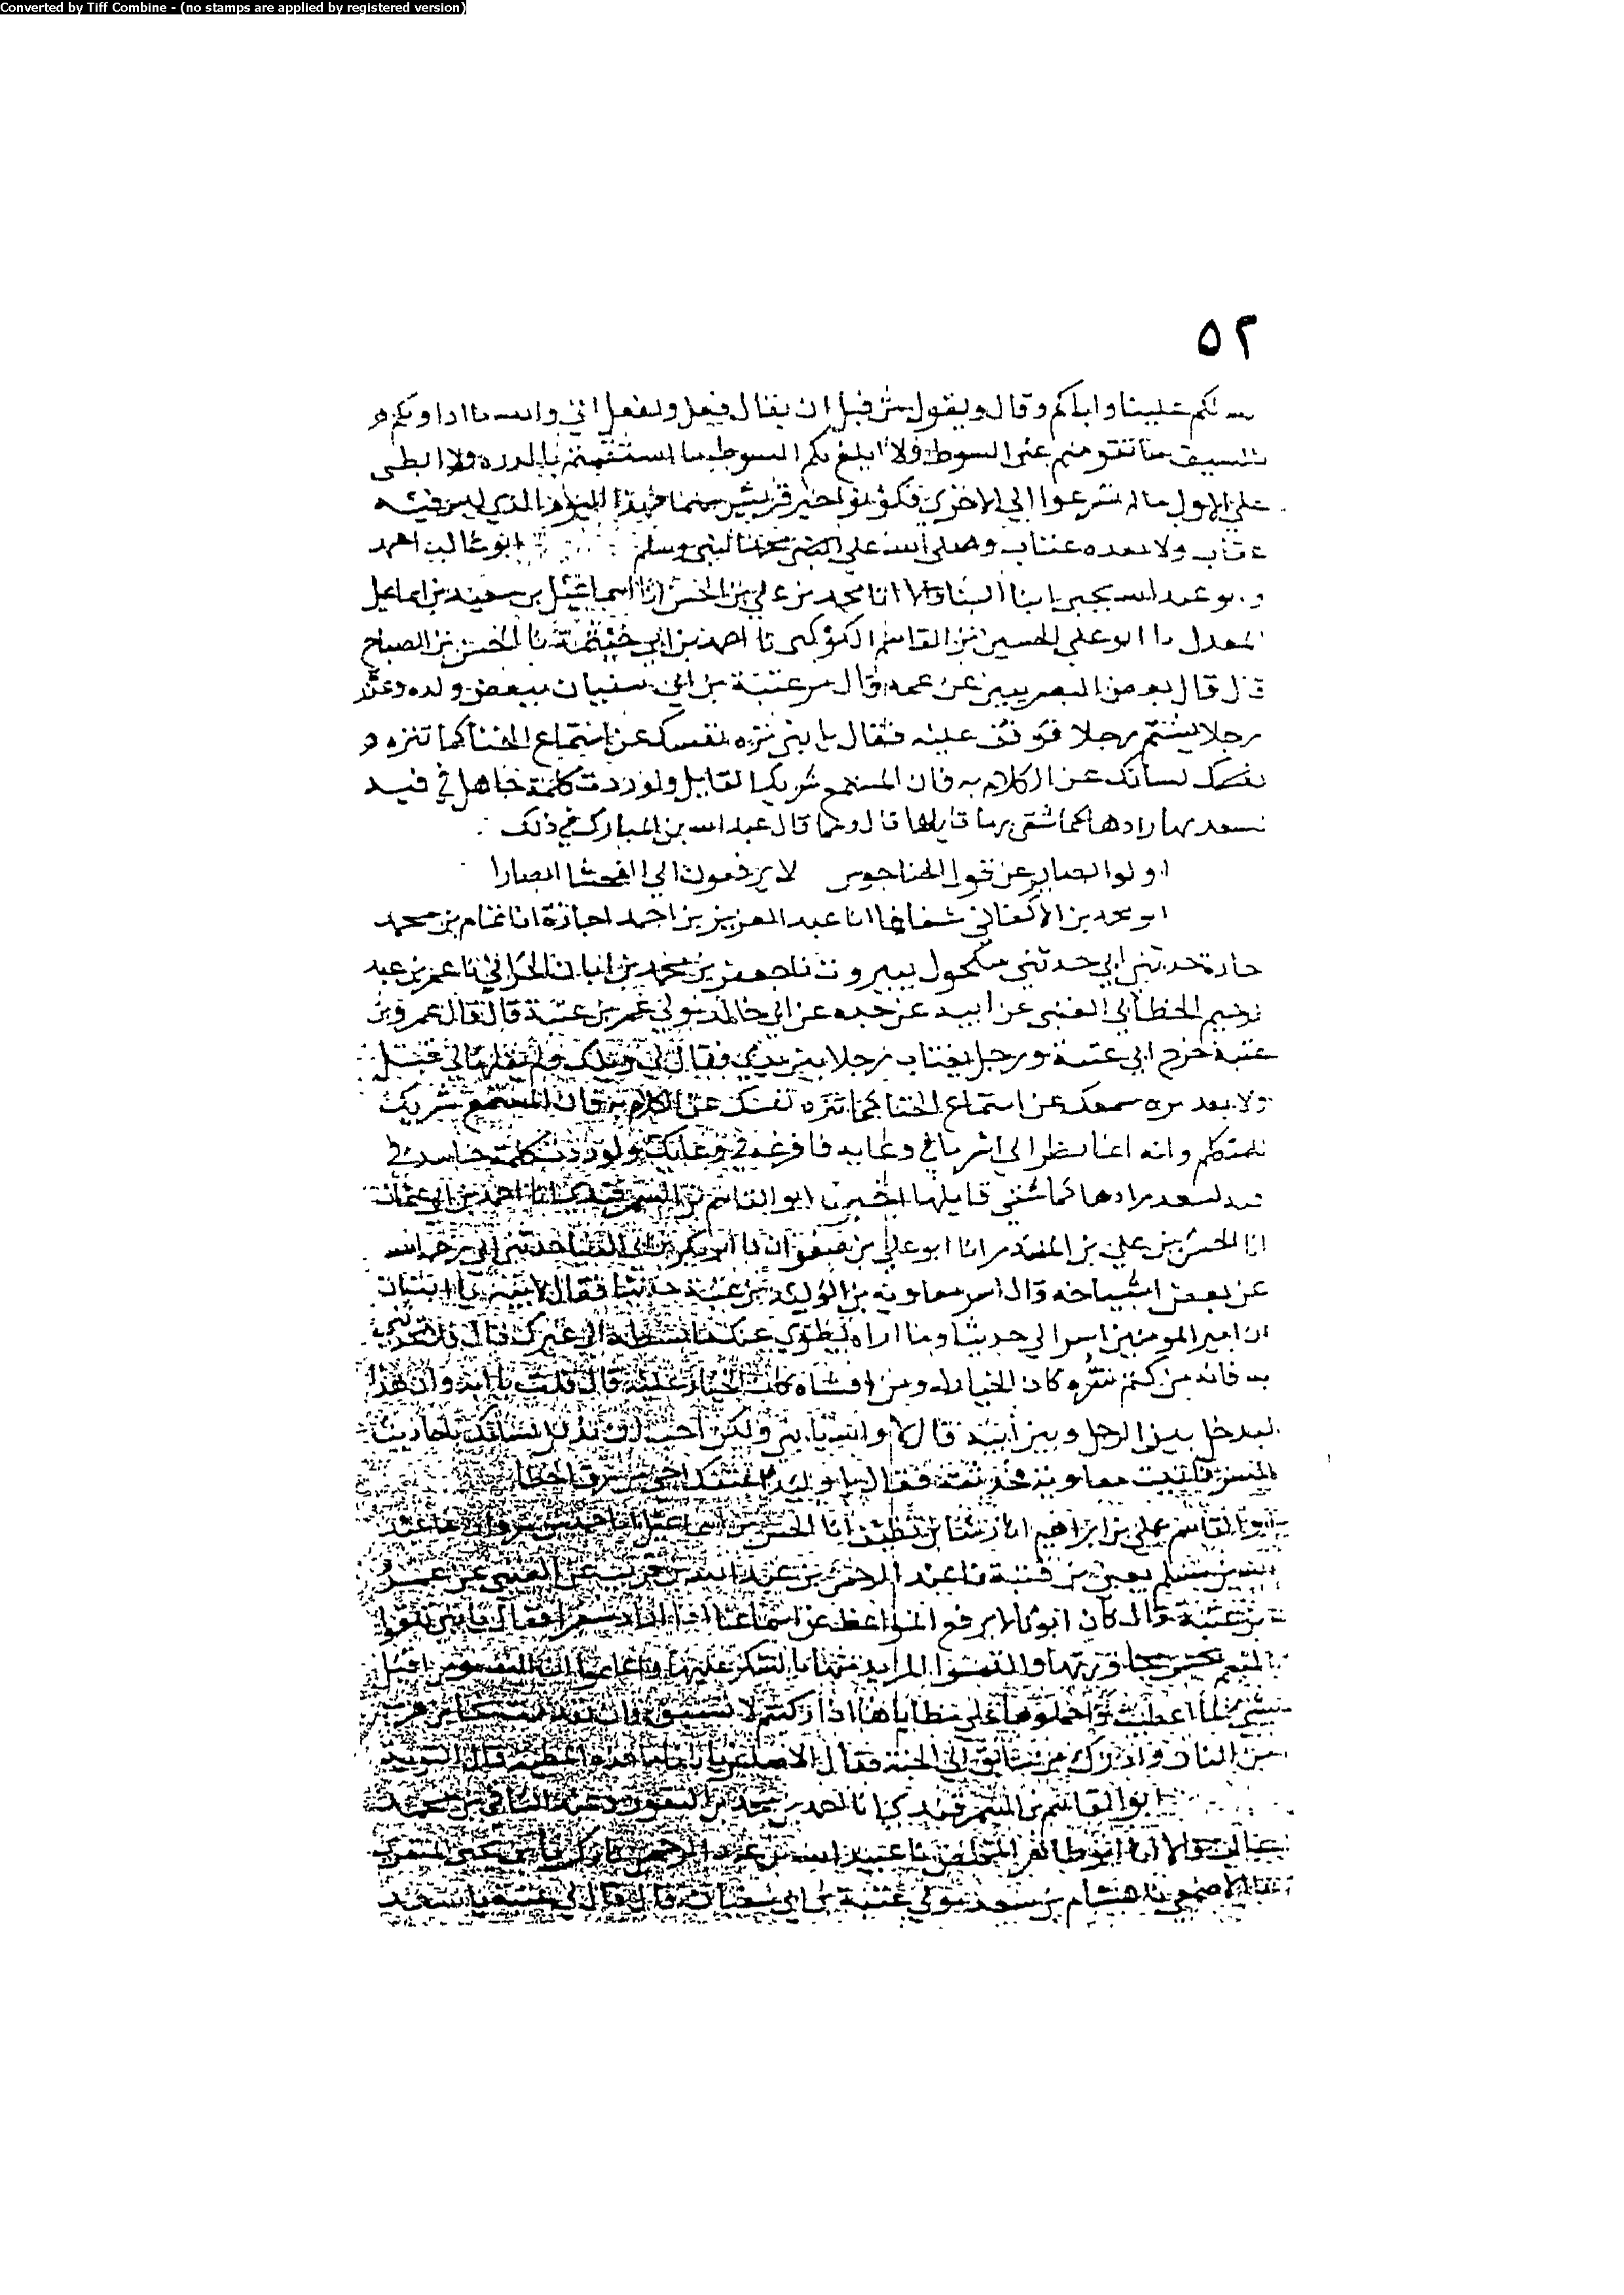 Converted by Tiff Combine - (no stamps are applied by registered version)
٥٢
لكم علينا واياكم وقال ويقول من قبل ان يقال فعل ولفعل اني والله ما اداويكم
بالسيف ما تقومتم على السوط ولا ابلغ بكم السوط ما استقمتم بالدره ولا ابطى
على الاولى ما لم تسرعوا الى الاخرى فكونوا خير قريش فهذا اليوم الذي ليس فيه
عقاب ولا بعده عتاب وصلى الله على محمد النبي وسلم ابو غالب احمد
وابو عبد الله يحيى ابنا البنا قالا انا محمد بن علي بن اسماعيل بن سعيد بن اسماعيل
المعدل نا ابو علي الحسين بن القاسم الكوكبي نا احمد بن ابي خيثمة نا الحسن بن الصباح
قال قال بعض البصريين عن عمه قال مر عتبة بن ابي سفيان ببعض ولده وعنده
رجلا يشتم رجلا فوقف عليه فقال يا بني نزه نفسك عن استماع الخنا كما تنزه
نفسك لسانك عن الكلام به فان المستمع شريك القايل ولو ردت كلمة جاهل في فيه
لسعد بها رادها كما شقي بها قايلها قال ومما قال عبد الله بن المبارك في ذلك
لا يرفعون الى الفحشا ابصارا
ابو محمد بن الاكفاني شفاها انا عبد العزيز بن احمد اجازة انا تمام بن محمد
اجازة حدثني ابي حدثني مكحول ببيروت نا جعفر بن محمد بن ابان الحراني نا عمر بن عبد
الخطابي العتبي عن ابيه عن جده عن ابي خالد مولى عمر بن عتبة قال قال عمرو بن
عتبة خرج ابي عتبة ورجل يغتاب رجلا بين يدي فقال لي ويلك ولم يقلها لي قبل
ولا بعد نزه سمعك عن استماع الخنا كما تنزه نفسك عن الكلام به فان المستمع شريك
المتكلم وانه انما نظر الى اشر ما في وعايه فافرغه في وعايك ولو ردت كلمة في
فيه لسعد رادها كما شقي قايلها اخبرنا ابو القاسم بن السمرقندي انا احمد بن ابي عثمان
انا الحسن بن علي بن المنذر انا ابو علي بن صفوان نا ابو بكر بن ابي الدنيا حدثني ابي رحمه الله
عن بعض اشياخه قال اسر معاويه بن الوليد بن عتبة حديثا فقال لابيه يا ابتاه
ان امير المومنين اسر الي حديثا وما اراه يطوي عنك ما بسطه الى غيرك قال فلا تحدثني
به فانه من كتم سره كان الخيار له ومن افشاه كان الخيار عليه قال قلت يا ابه وان هذا
ليدخل بين الرجل وبين ابيه قال لا والله يا بني ولكن احب ان لا تذلل لسانك باحاديث
السر فاتيت معاوية فحدثته فقال يا وليد اعتقك اخي من رق الخطا
ابو القاسم علي بن ابراهيم انا رشا بن نظيف انا الحسن بن اسماعيل انا احمد بن مروان نا عبد
الله بن مسلم يعني بن قتيبة نا عبد الرحمن بن عبد الله بن قريب عن العتبي عن
بن عتبة قال كان ابونا لا يرفع المواعظ عن اسماعنا اذا اراد سفرا فقال يا بني
النعم بحسن مجاورتها والتمسوا المزيد منها بالشكر عليها واعلموا ان النفوس اقبل
شي لما اعطيت فاحملوها على مطاياها اذا ركبتم لا تسبق وان
من النار وادرك من سابق الى الجنة فقال الاصاغر يا ابانا ما هذه المطية قال التوبة
ابو القاسم بن السمرقندي انا احمد بن محمد بن النقور وعبد الباقي بن محمد
غالب قالا انا ابو طاهر المخلص نا عبيد الله بن عبد الرحمن نا زكريا بن يحيى المنقري
نا الاصمعي نا هشام بن سعد مولى عتبة بن ابي سفيان قال قال لي عتبة يا سعد